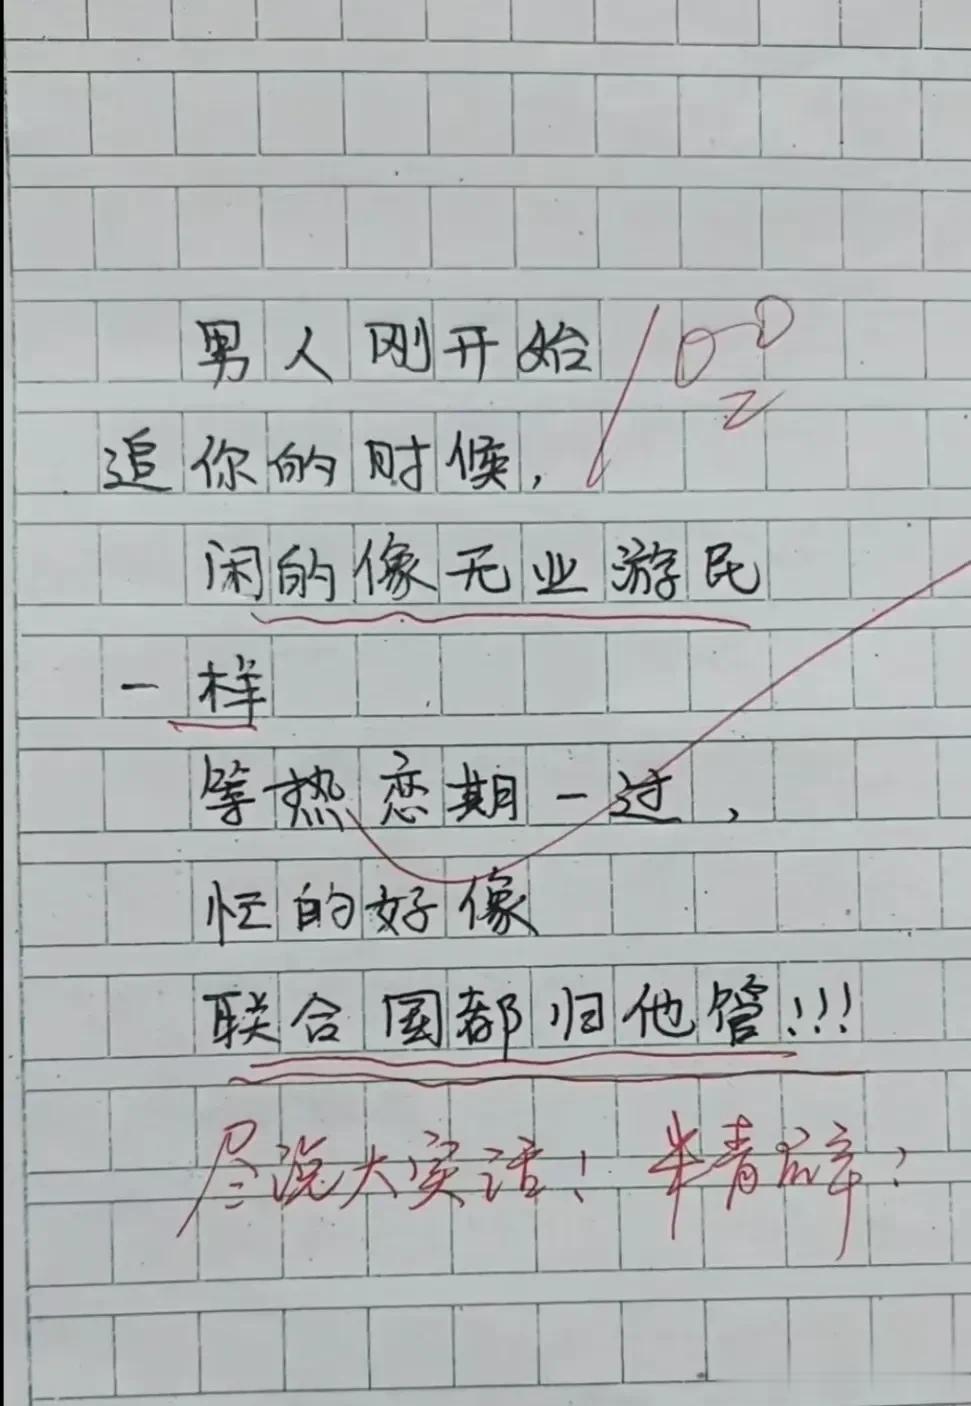 男人刚开始
100
追你的时候,
闲的像无业游民
一样
等热恋期一过,
忙的好像
联合国都归他管!!!
尽说大实话!